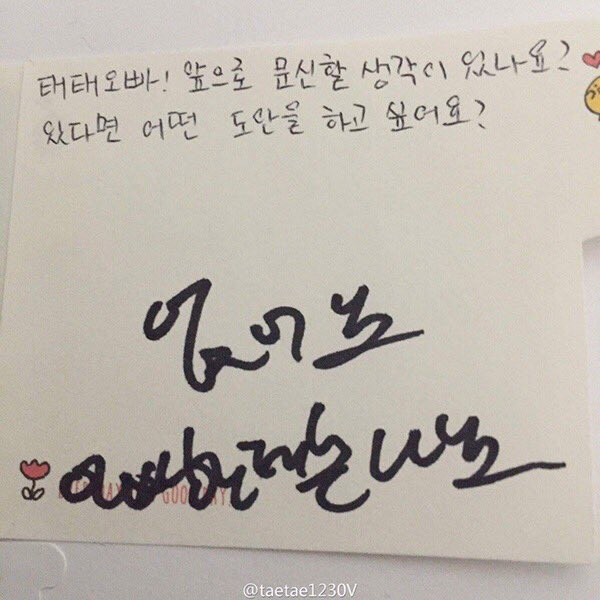 태태오빠! 앞으로 문신할 생각이 있나요?
있다면 어떤 도안을 하고 싶어요?
없어요
GOOD
@taetae1230V